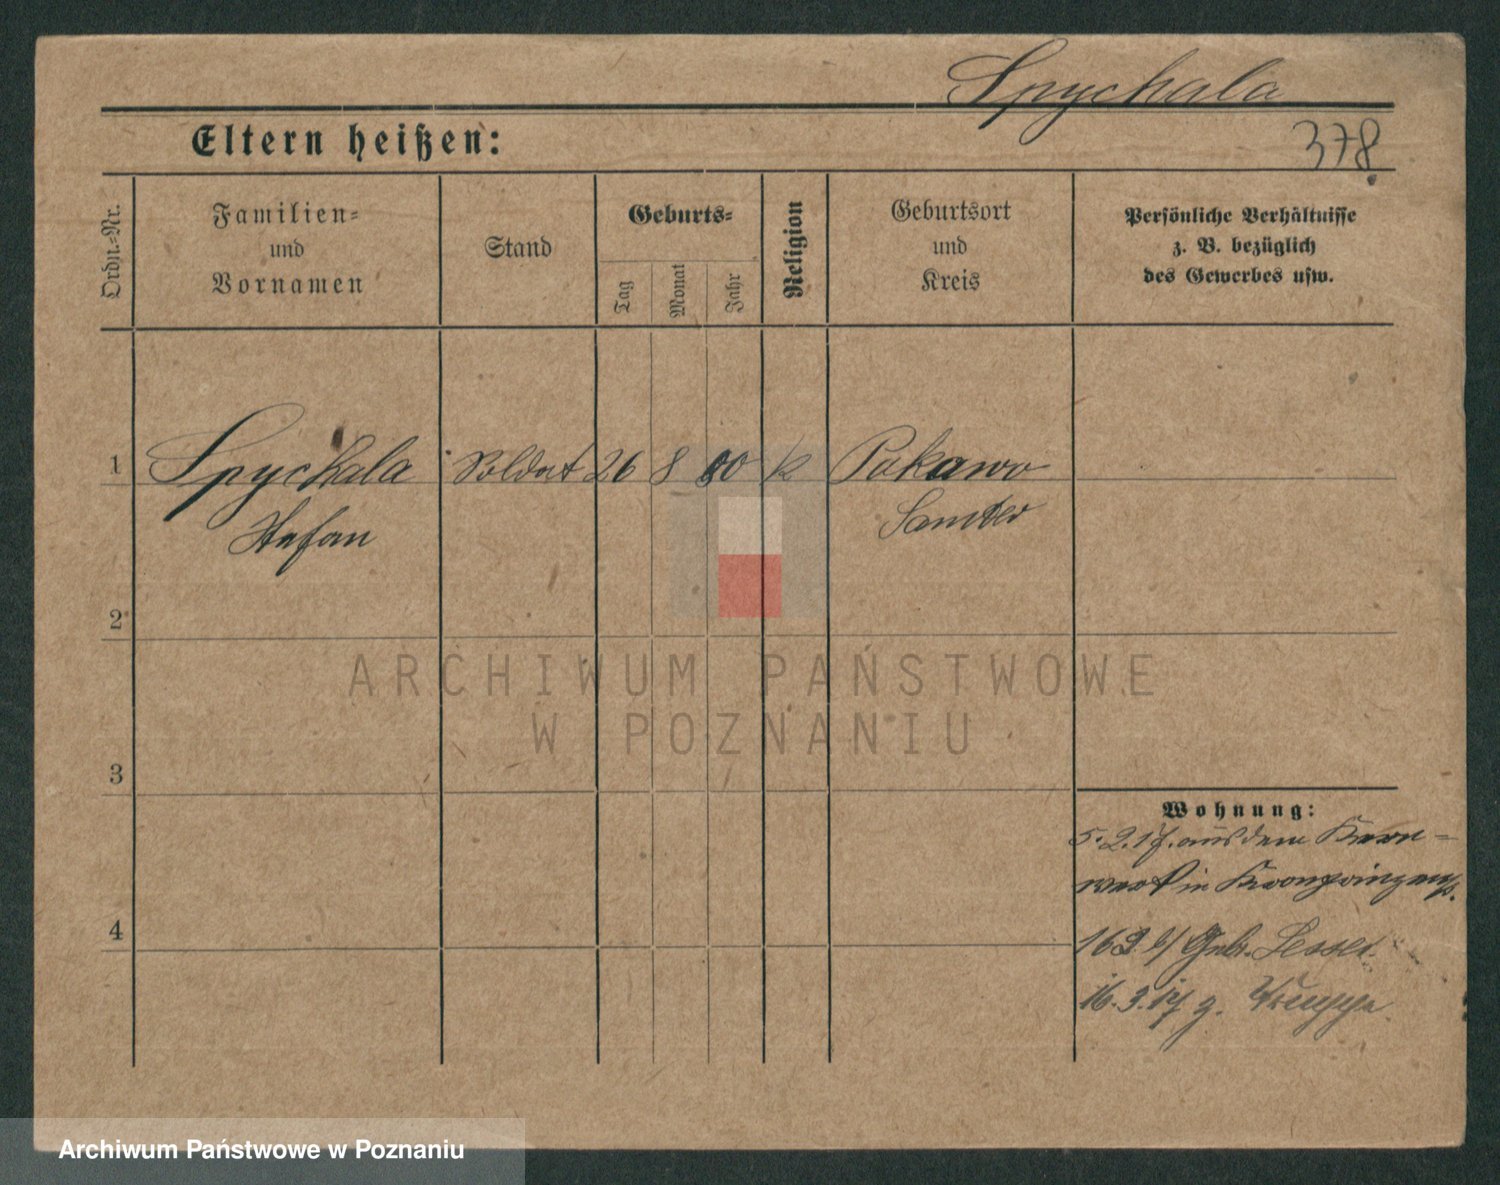 Spychala
Eltern heißen:
378
Ordn.-Nr.
Familien-
und
Vornamen
Stand
Geburts-
Tag
Monat
Jahr
Religion
Geburtsort
und
Kreis
Persönliche Verhältnisse
z. B. bezüglich
des Gewerbes usw.
1
Spychala Soldat 26 8 80 k Pakawo
Stefan Samter
2
ARCHIWUM PAŃSTWOWE
W POZNANIU
3
Wohnung:
5.2.17. aus dem Kern-
werk in Kronprinzens
4
Gebr. Lesser.
16.3.17 z. Truppe
Archiwum Państwowe w Poznaniu